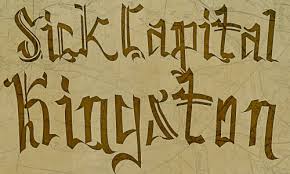 Sick Capital
Kingston